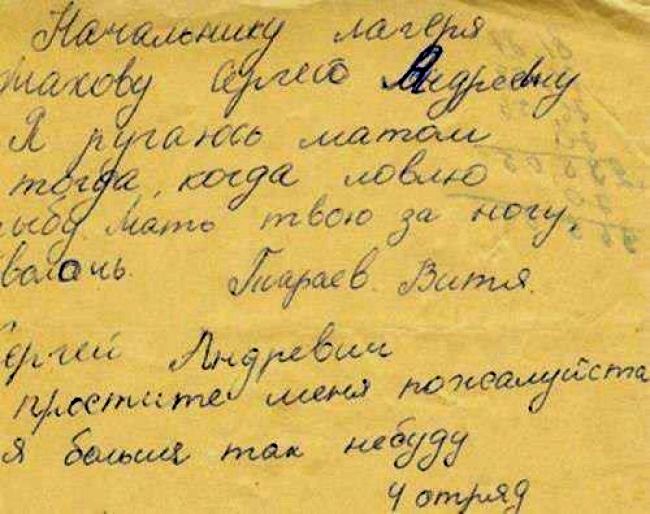 Начальнику лагеря
такову Сергею Андреевну
Я ругаюсь матом
тогда, когда ловлю
рыбу. Мать твою за ногу,
волочь. Тиараев. Витя.
Сергей Андревич
простите меня пожалуйста
я больше так небуду
4 отряд